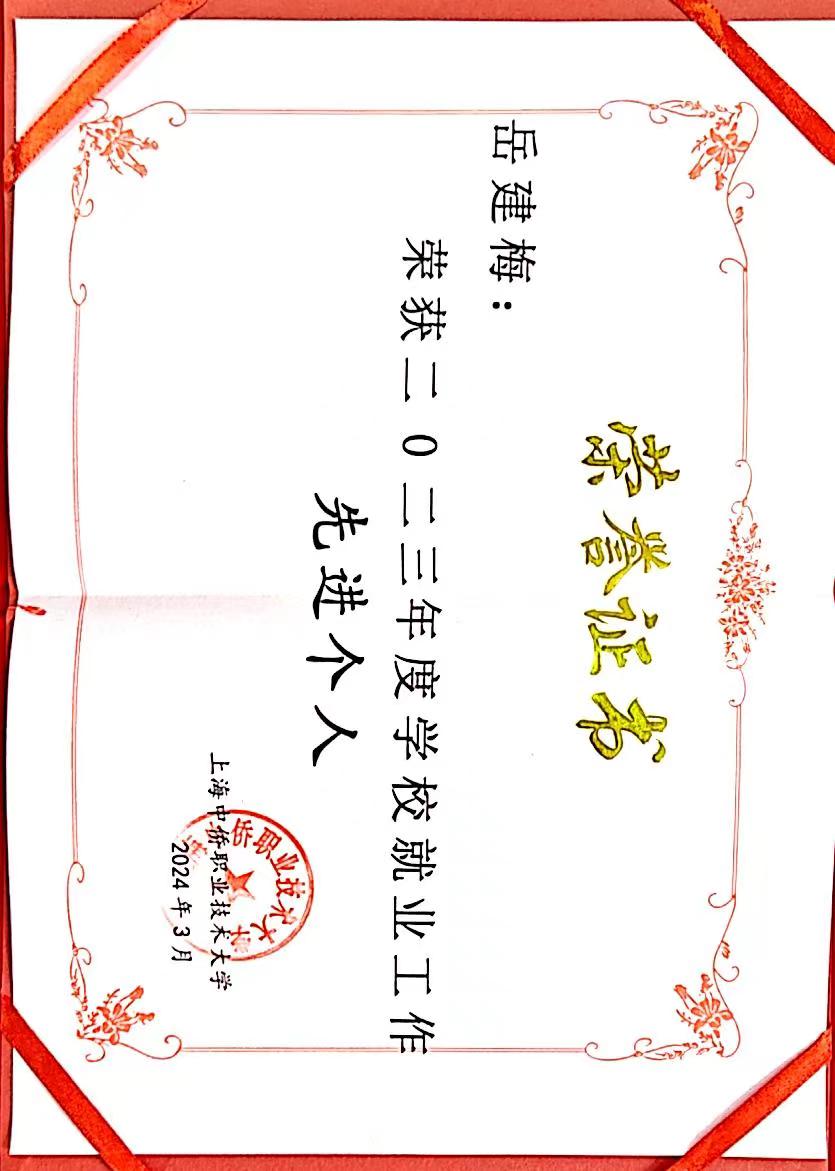 荣誉证书
岳建梅：
荣获二0二三年度学校就业工作
先进个人
上海中侨职业技术大学
2024年3月
侨职业技术大